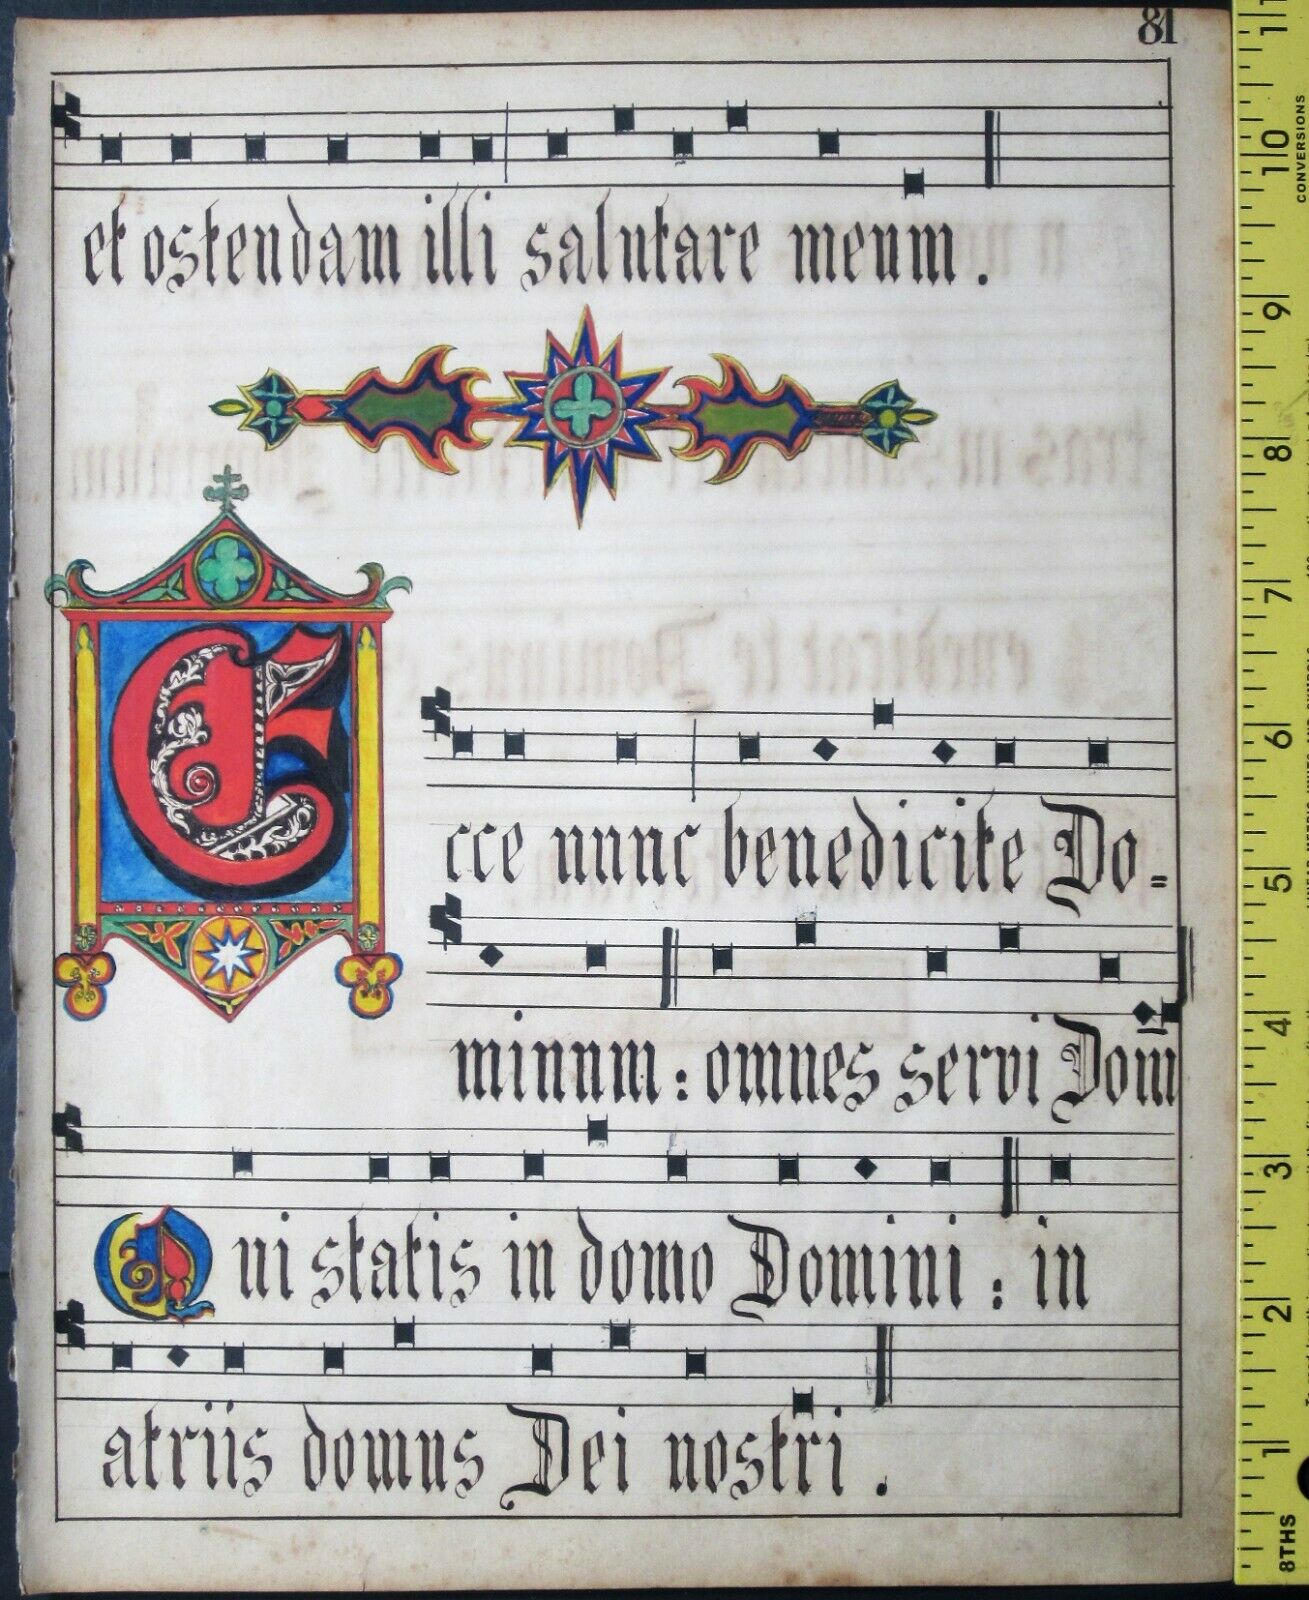 81
et ostendam illi salutare meum.
Ecce nunc benedicite Do=
minum: omnes servi Dom̄
Qui statis in domo Domini: in
atriis domus Dei nostri.
11
10
9
8
7
6
5
4
3
2
1
CONVERSIONS
8THS